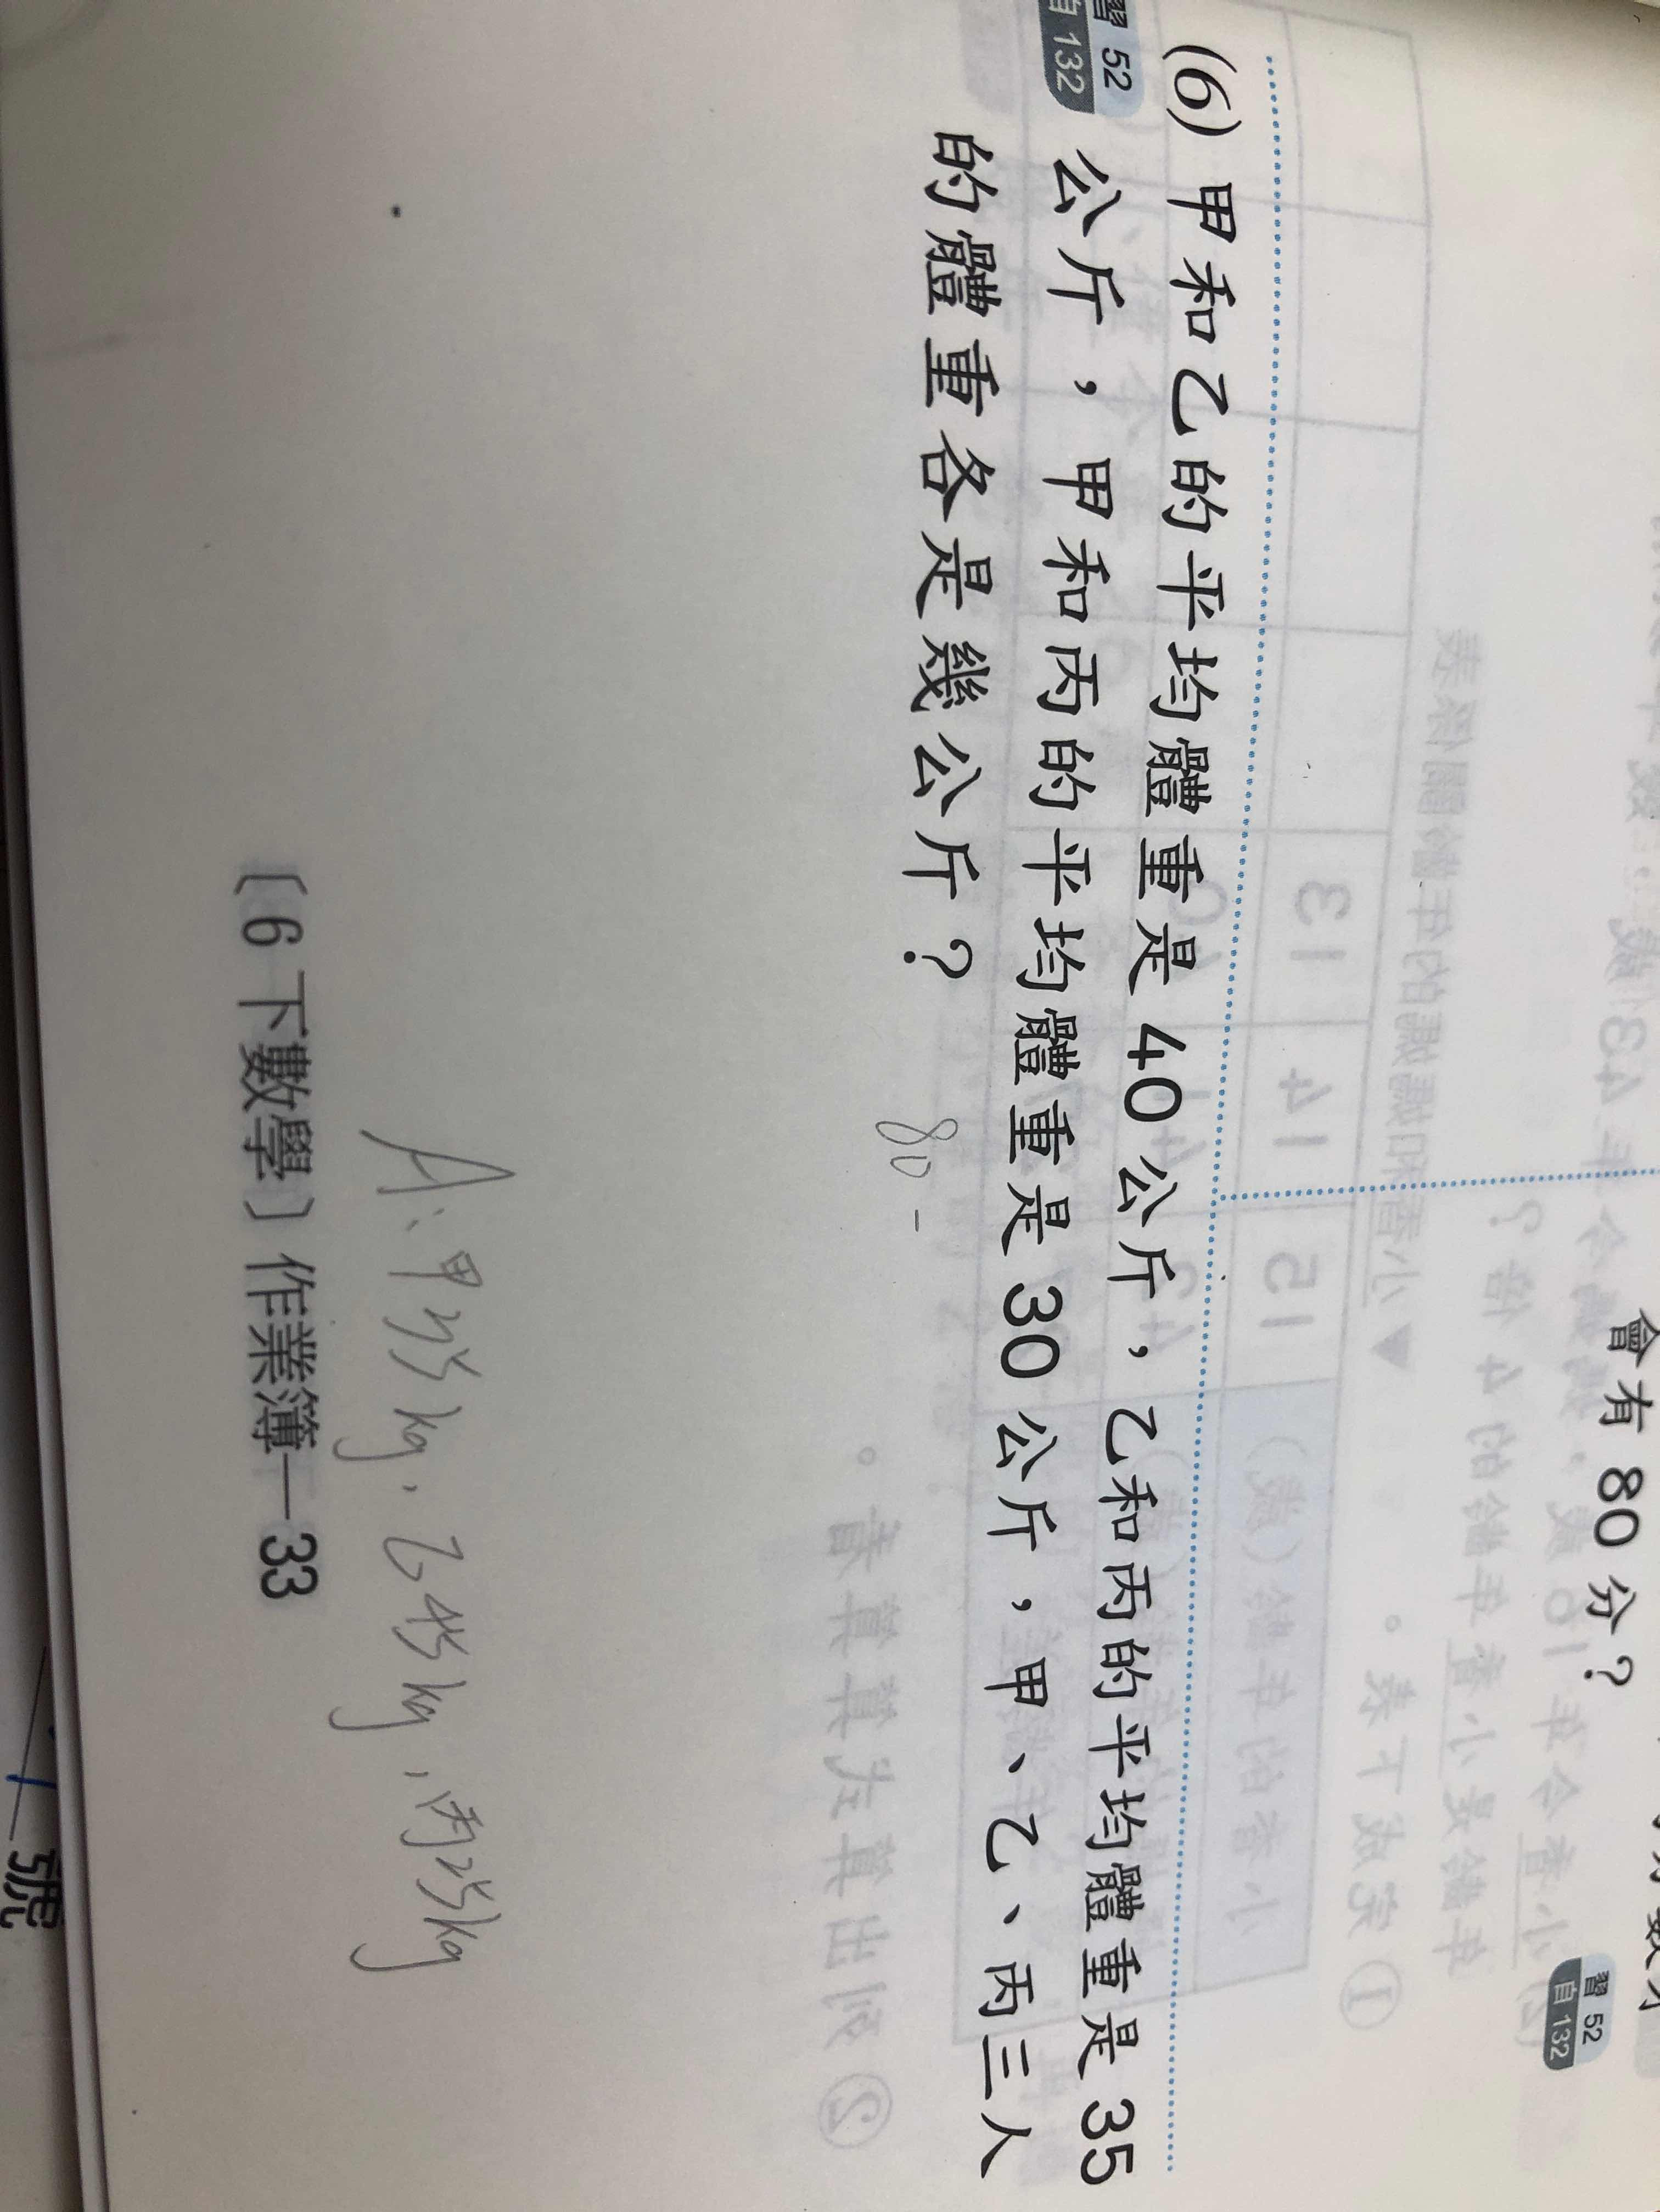 會有 80 分？
習 52
自 132
(6) 甲和乙的平均體重是 40 公斤，乙和丙的平均體重是 35
習 52
自 132
公斤，甲和丙的平均體重是 30 公斤，甲、乙、丙三人
的體重各是幾公斤？
80 -
A：甲35kg，乙45kg，丙25kg
〔6 下數學〕作業簿—33
號